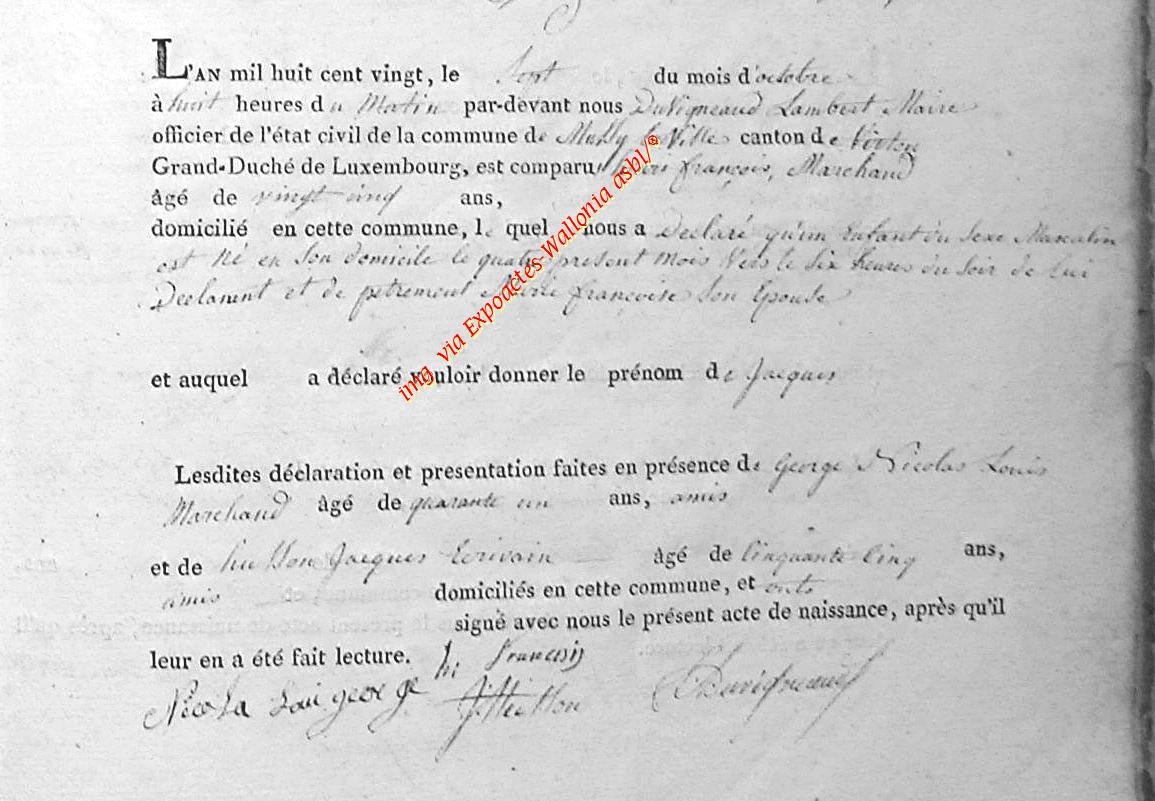 L'AN mil huit cent vingt, le Sept du mois d'octobre
à huit heures du Matin par-devant nous Duvigneaud Lambert Maire
officier de l'état civil de la commune de Mussy la Ville canton de Virton
Grand-Duché de Luxembourg, est comparu françois, Marchand
âgé de vingt cinq ans,
domicilié en cette commune, lequel nous a Declaré qu'un Enfant du Sexe Masculin
est Né en Son domicile le quatre present mois Vers le Six heures du Soir de Lui
Declarant et de petrement Marie françoise Son Epouse
et auquel a déclaré vouloir donner le prénom de Jacques
Lesdites déclaration et presentation faites en présence de George Nicolas Louis
Marchand âgé de quarante un ans, amis
et de husson Jacques Ecrivain âgé de Cinquante Cinq ans,
amis domiciliés en cette commune, et onts
signé avec nous le présent acte de naissance, après qu'il
leur en a été fait lecture. françois
Nicola Loui george J. Husson Duvigneaud
img via Expoactes-Wallonia asbl/®